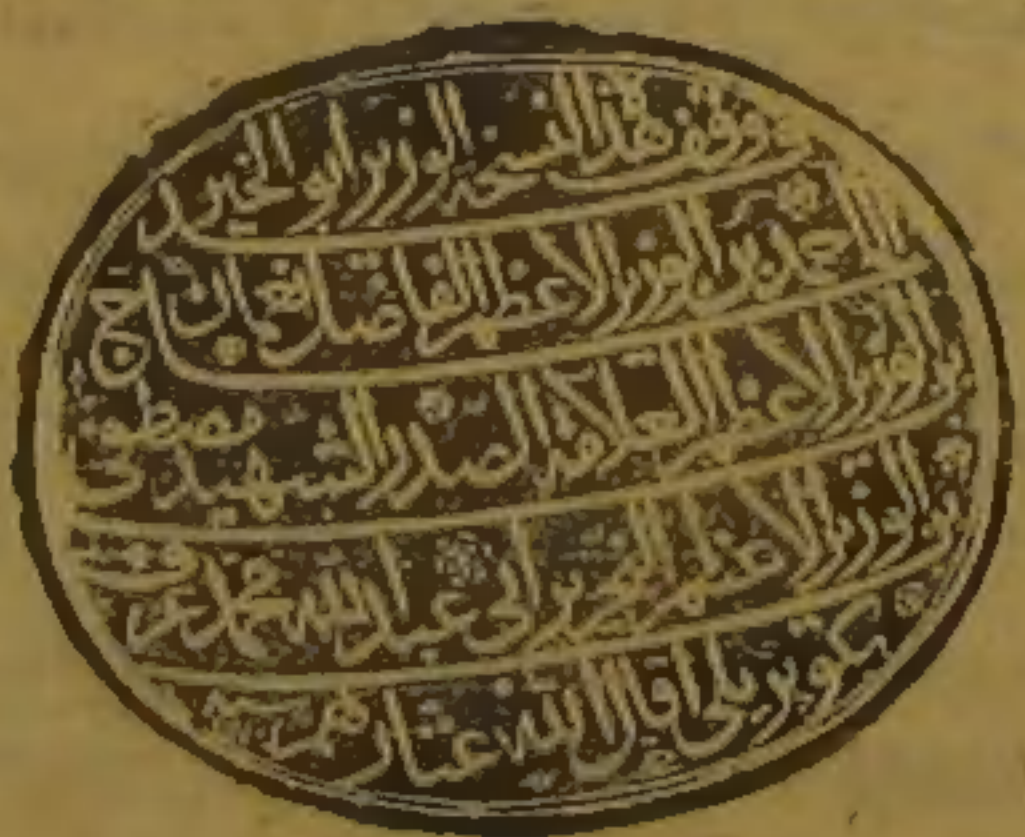 وقف هذا النسخة الوزير ابو الخير
احمد بن الوزير الاعظم الفاضل نعمان باشا
بن الوزير الاعظم العلامة الصدر الشهيد مصطفى
بن الوزير الاعظم النحرير ابى عبد الله محمد عرف
بكوبريلى اقال الله عثارهم